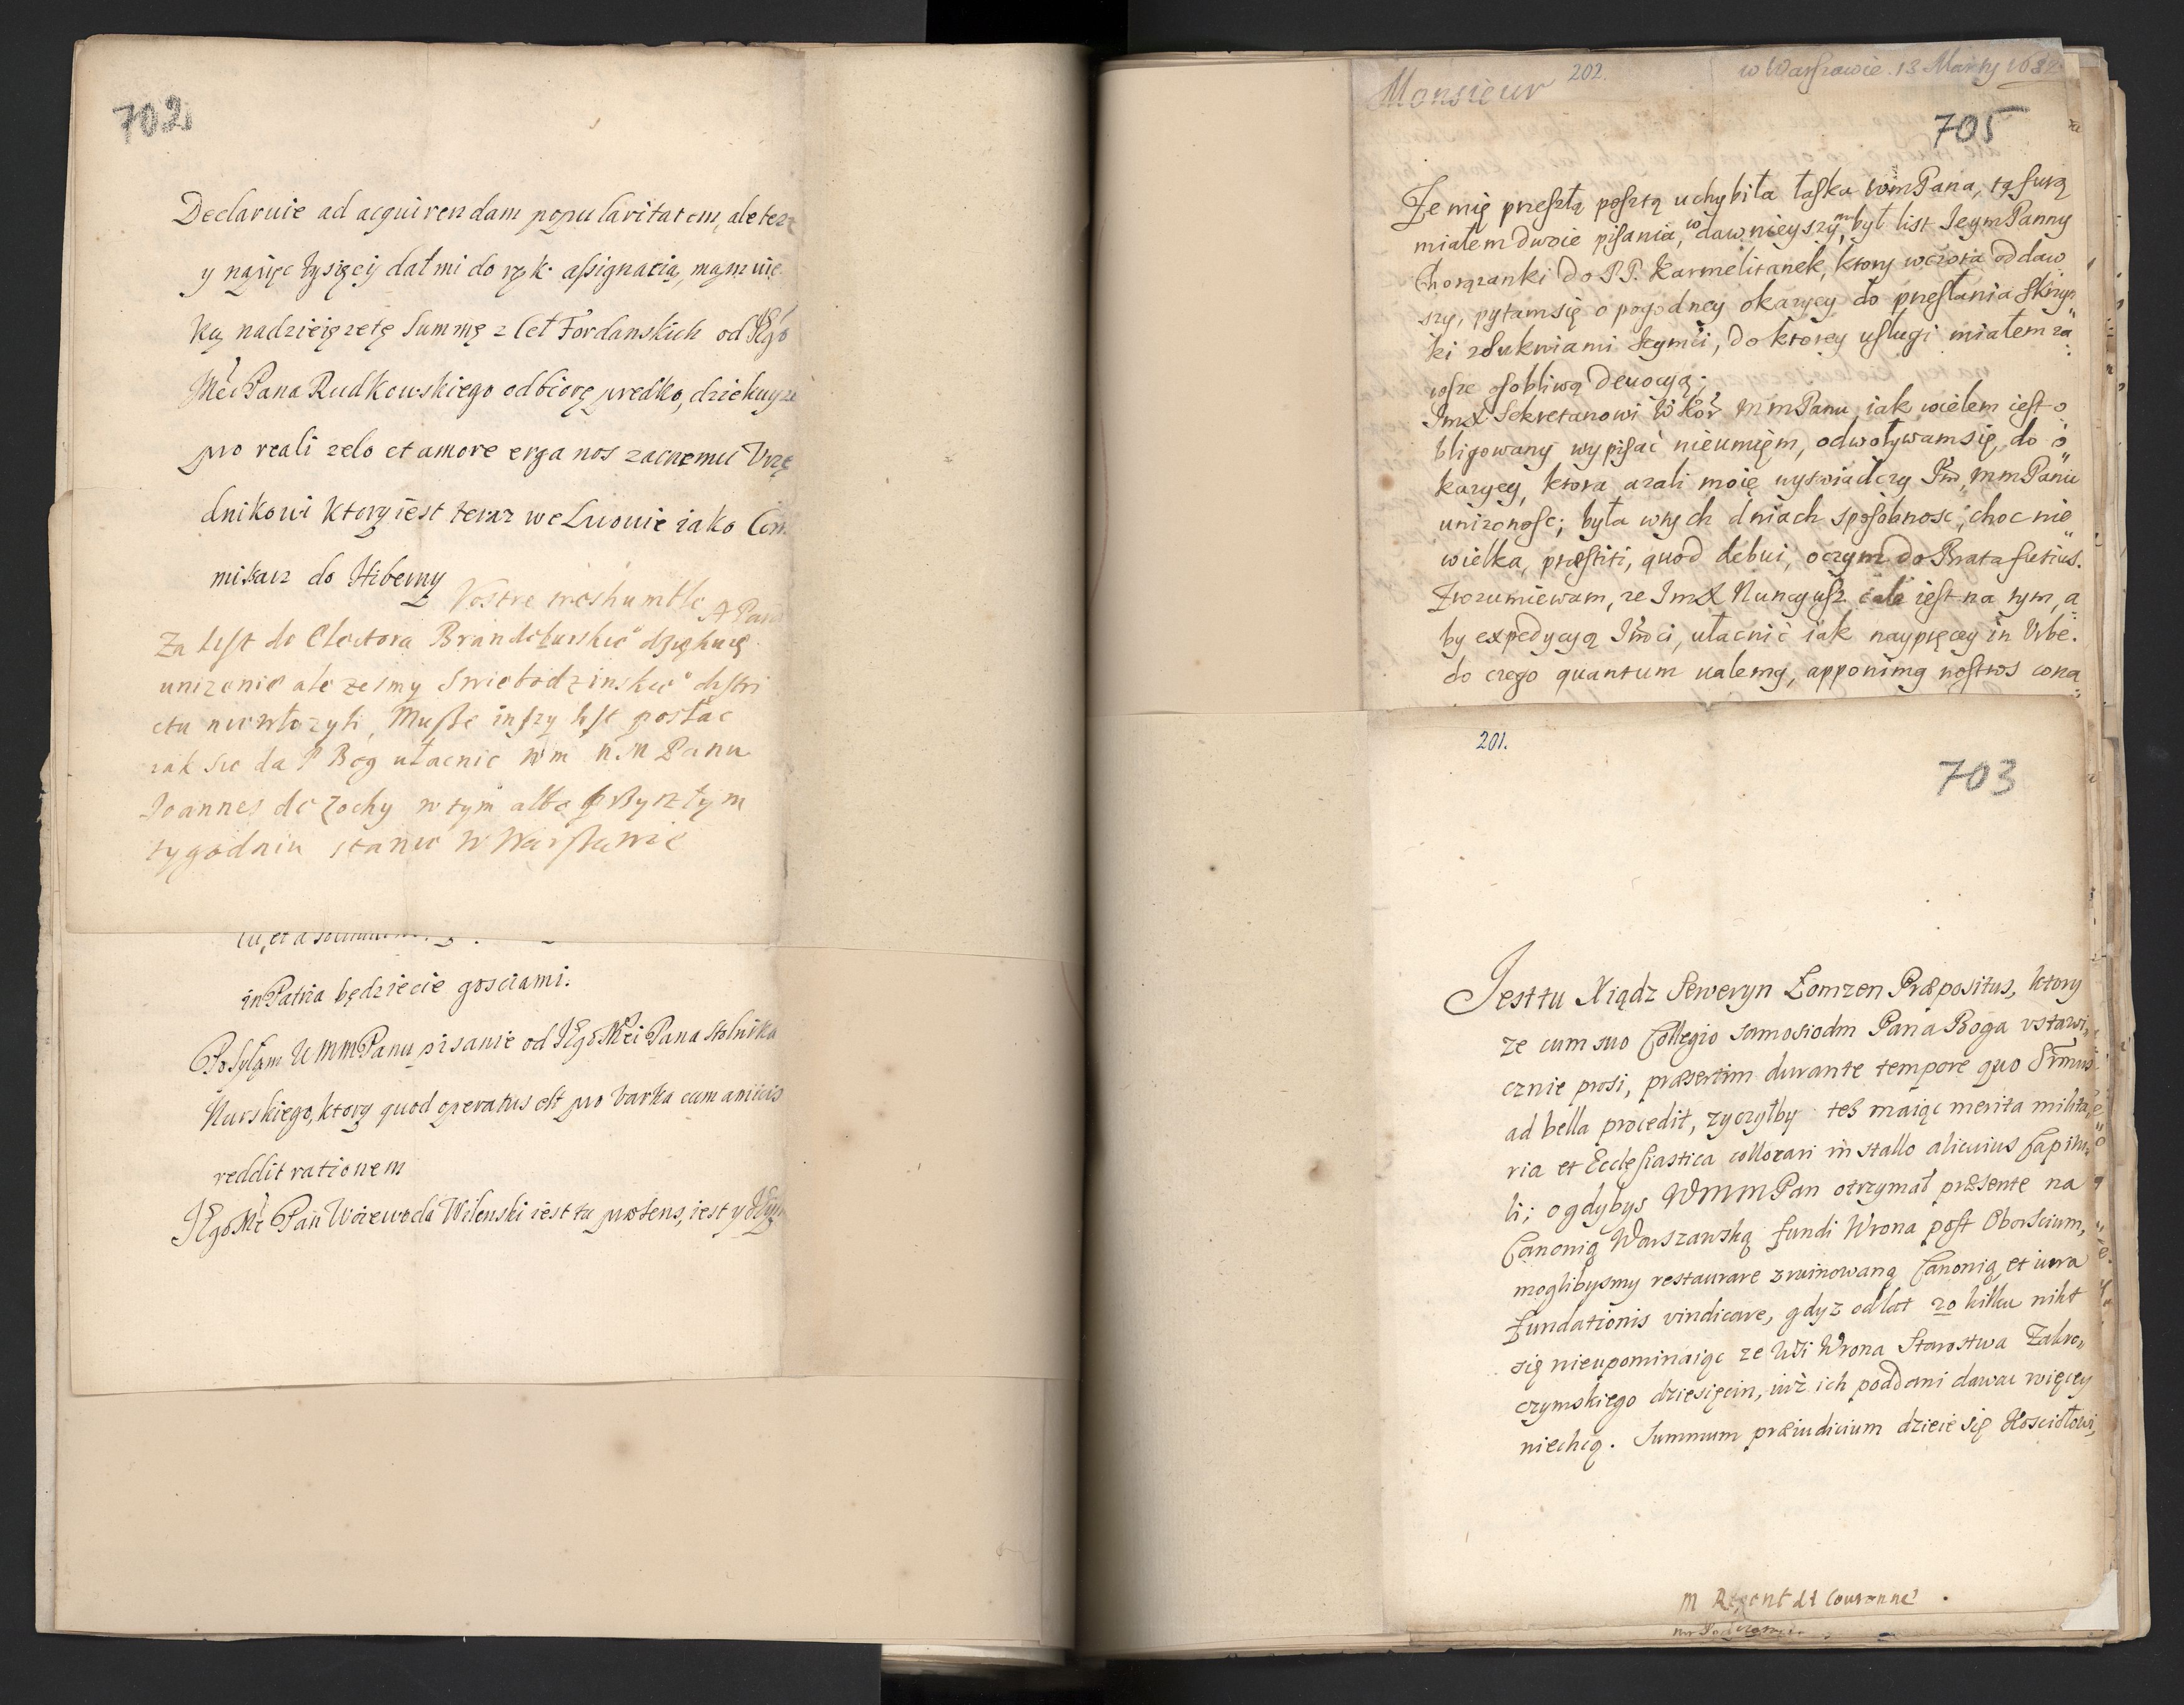 702
Declaruie ad acquirendam popularitatem, ale tez
y na pięc tysięcy dał mi do rąk assignacią, mam
ką nadzieię ze tę summę z Cet Fordanskich od
Mći Pana Rudkowskiego odbiorę prędko, dziekuyze
pro reali zelo et amore erga nos zacnemu Vrzę
dnikowi ktory iest teraz we Lwowie iako Com
misarz do Hiberny
Vostre treshumble
Za list do Electora Brandeburskie° dziękuię
unizenie ale zesmy Swiebodzinskie° distri
ctu nie włozyli, Musze inszy list posłac
iak sie da P Bog ułacnic wm m. m Panu
Joannes de Zochy w tym albo przyszłym
tygodniu stanie w Warszawie
in Patria będziecie gosciami.
Posyłam WMMPanu pisanie od IEgo Mći Pana Stolnika
Nurskiego, ktory quod operatus est pro Varka cum amicis
reddit rationem
IEgo Mć Pan Woiewoda Wilenski iest tu prӕsens, iest y
202.
Monsieur
w Warszawie. 13 Marty 1682
705
Ze mię przeszłą posztą uchybiła łaska WmPana, tą suią
miałem dwoie pisania, w dawnieyszym był list JeymPanny
Chorązanki do PP. Karmelitanek, ktory wczora oddaw
szy, pytam się o pogodney okazyey do przesłania skrzyn
ki z sukniami Jeymći, do ktorey usługi miałem za
wsze osobliwą devocyą;
ImX Sekretarzowi WKor MmPanu iak wielem iest o
bligowany wypisać nieumięm, odwoływam się do o
kazyey, ktora azali moię wyswiadczy Im MmPanu
unizonosc; była w tych dniach sposobnosc, choc nie
wielka, prӕstiti, quod debui, o czym do Brata fusius.
Zrozumiewam, ze ImX Nuncyusz cale iest na tym, a
by expedycyą Imci, ułacnić iak naypręcey in Vrbe.
do czego quantum valemg, apponimg nostros cona
201.
703
Jest tu Xiądz Seweryn Łomzen Prӕpositus, ktory
ze cum suo Collegio samosiodm Pana Boga vstawi,
cznie prosi, prӕsertim durante tempore quo Srmus
ad bella procedit, zyczyłby tes maiąc merita milita,
ria et Ecclesiastica collocari in stallo alicuius Capitu,
li; o gdybys WMMPan otrzymał prӕsente na
Canonią Warszawską fundi Wrona post Oborscium,
moglibysmy restaurare zruinowaną Canonią, et iura
Fundationis vindicare, gdyz od lat 20 kilku nikt
się nieupominaiąc ze Wsi Wrona Starostwa Zakro,
czymskiego dziesięcin, iuż ich poddani dawac więcey
niechcą. Summum prӕiudicium dzieie się Kosciołowi,
M Regent de Couronne